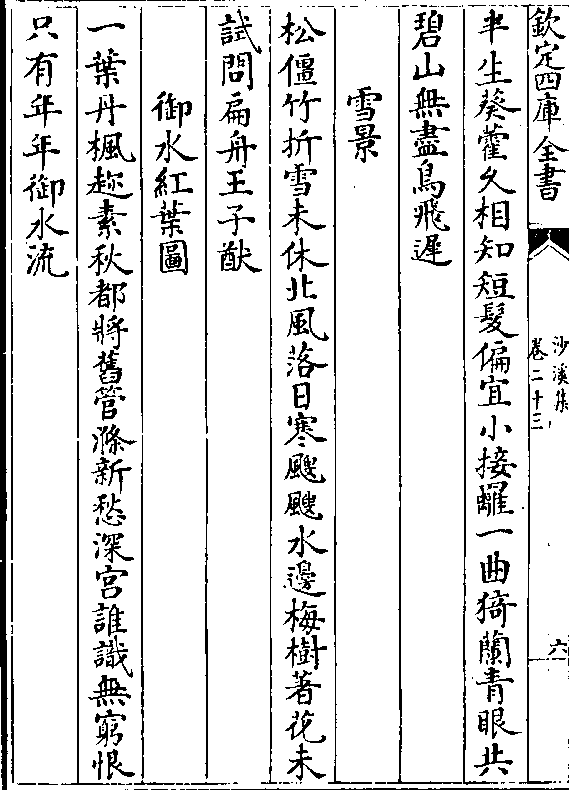 欽定四庫全書
沙溪集
卷二十三
六
半生葵藿久相知短髮偏宜小接䍦一曲猗蘭青眼共
碧山無盡鳥飛遲
雪景
松僵竹折雪未休北風落日寒颼颼水邊梅樹著花未
試問扁舟王子猷
御水紅葉圖
一葉丹楓趂素秋都將舊管滌新愁深宫誰識無窮恨
只有年年御水流